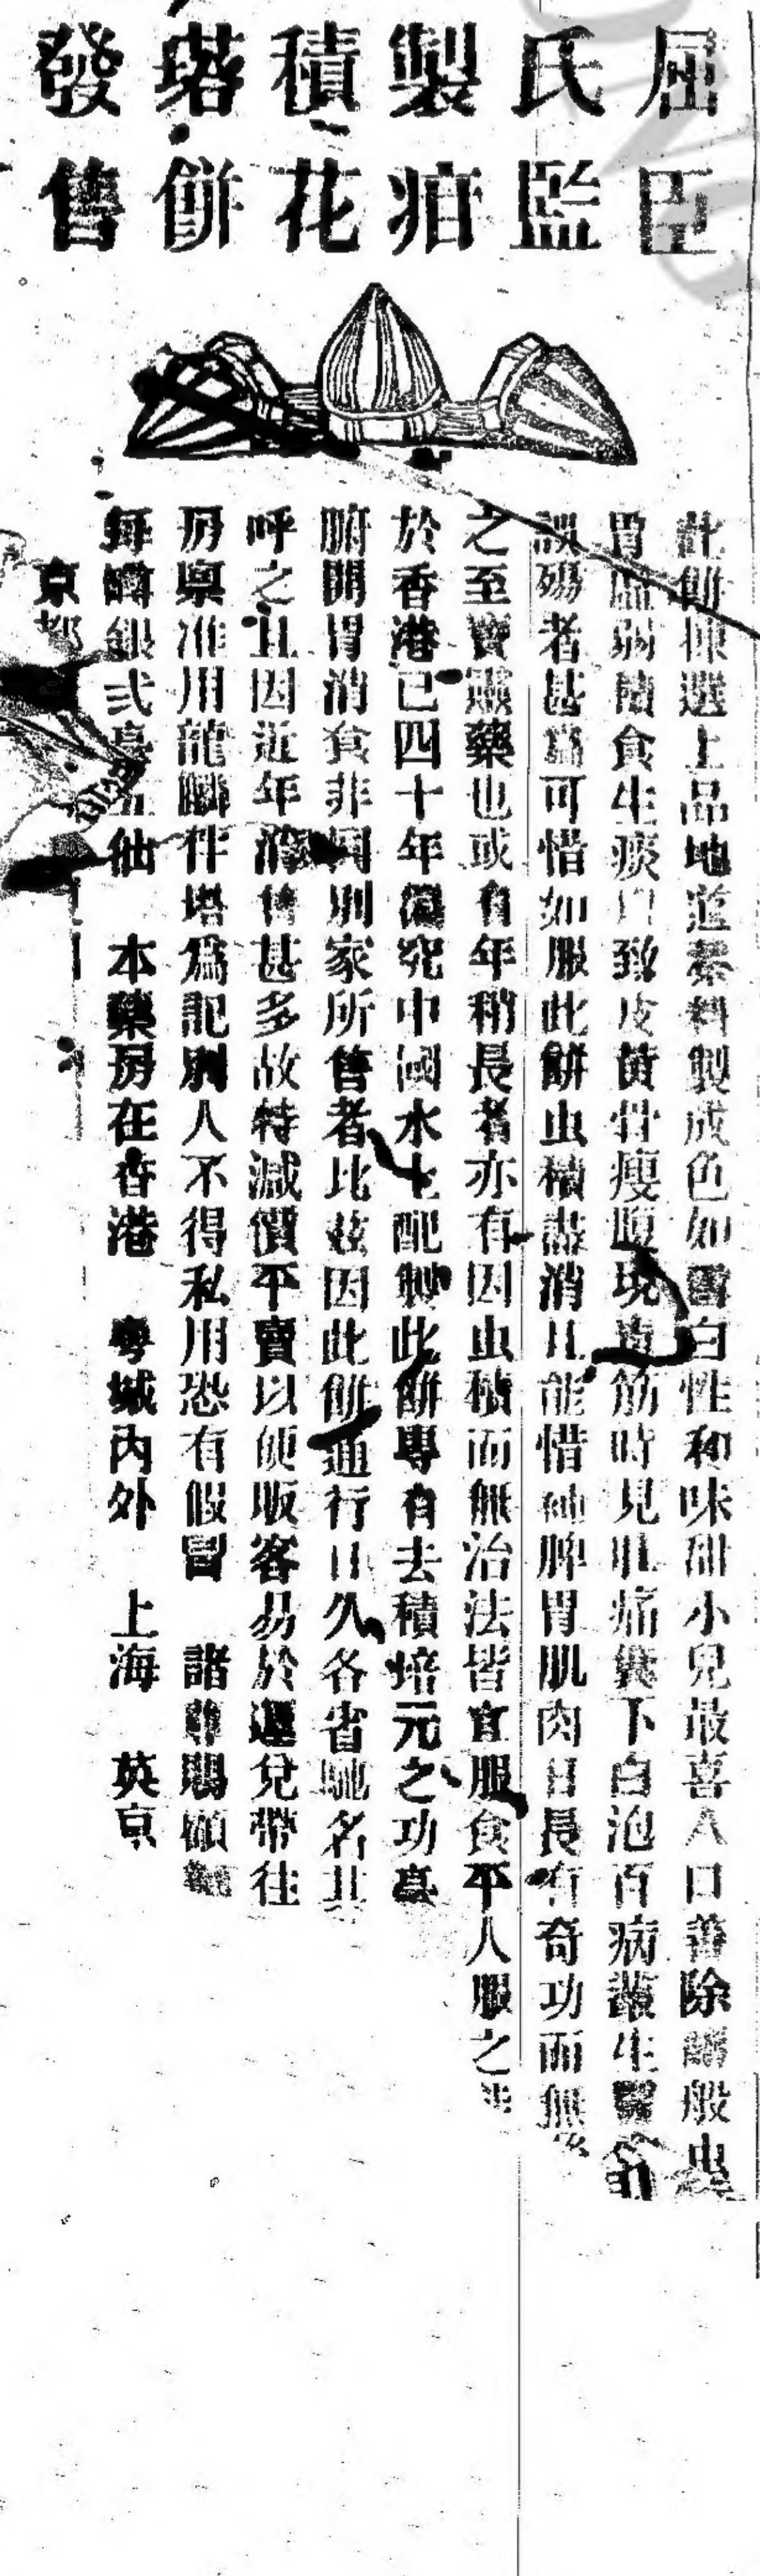 屈臣
氏監
製疳
積花
塔餅
發售
此餅揀選上品地道藥料製成色如雪白性和味甜小兒最喜入口善除諸般虫
胃虛弱積食生痰以致皮黃骨瘦腹現青筋時見肚痛糞下白泡百病叢生
誤殤者甚為可惜如服此餅虫積盡消且能惜純脾胃肌肉日長有奇功而無
之至寶靈藥也或有年稍長者亦有因虫積而無治法皆宜服食平人服之
於香港已四十年深究中國水土配製此餅專有去積培元之功
腑開胃消食非同別家所售者比茲因此餅通行日久各省馳名其
呼之且因近年消售甚多故特減價平賣以便販客易於運兌帶往
房稟准用龍麟伴塔為記別人不得私用恐有假冒 諸尊賜顧
每罇銀弍毫五仙 本藥房在香港 粵城內外 上海 英京
京都